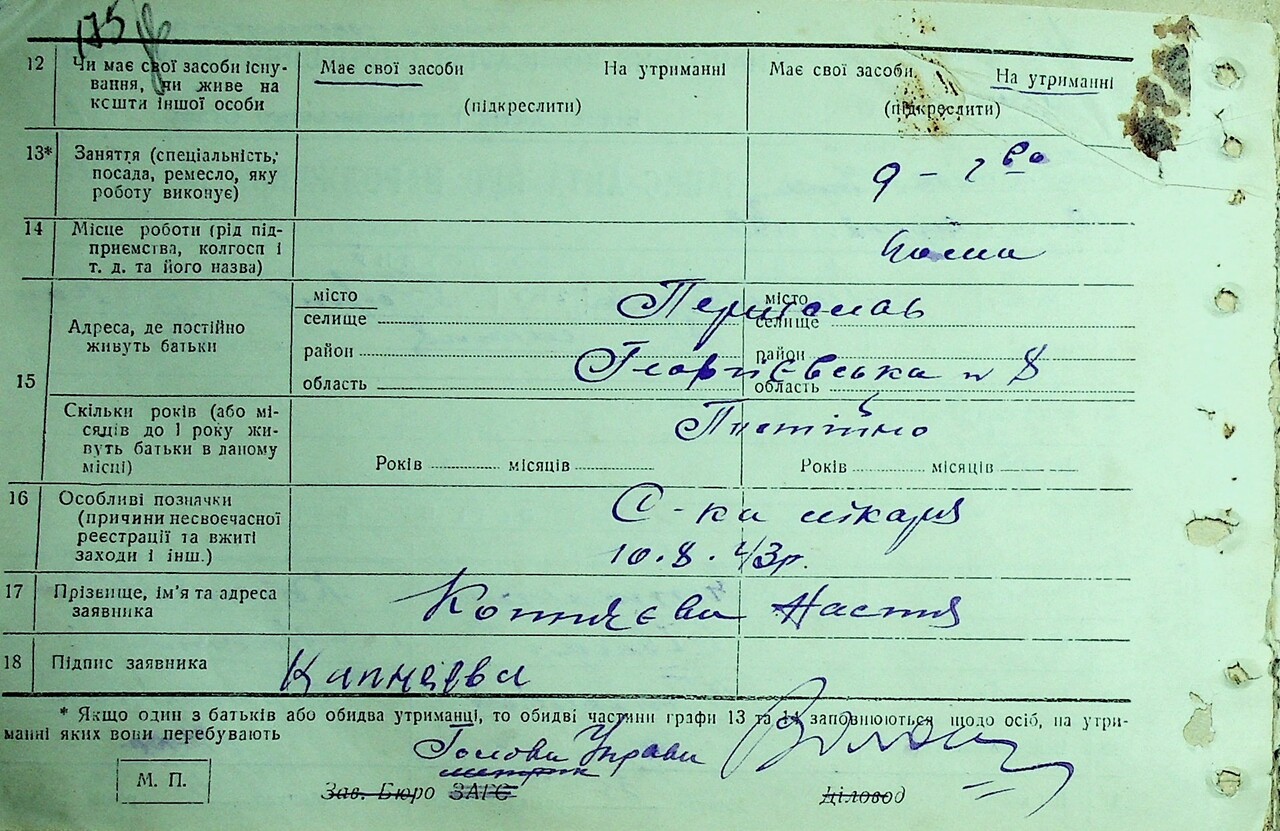 175
12 Чи має свої засоби існу- Має свої засоби На утриманні Має свої засоби На утриманні
вання, чи живе на
кошти іншої особи (підкреслити) (підкреслити)
13* Заняття (спеціальність,
посада, ремесло, яку
роботу виконує) 9 – 2
14 Місце роботи (рід під-
приємства, колгосп і
т. д. та його назва)
15 Адреса, де постійно
живуть батьки
місто місто
селище селище
район район
область область
Переяслав
Георгієвська № 8
Скільки років (або мі-
сяців до 1 року жи-
вуть батьки в даному
місці) Постійно
Років місяців Років місяців
16 Особливі позначки
(причини несвоєчасної
реєстрації та вжиті
заходи і інш.)
С-ка лікаря
10.8.43р.
17 Прізвище, ім'я та адреса
заявника Настя
18 Підпис заявника
* Якщо один з батьків або обидва утриманці, то обидві частини графи 13 та 14 заповнюються щодо осіб, на утри-
манні яких вони перебувають
Голова Управи
М. П. Зав. Бюро ЗАГС Діловод